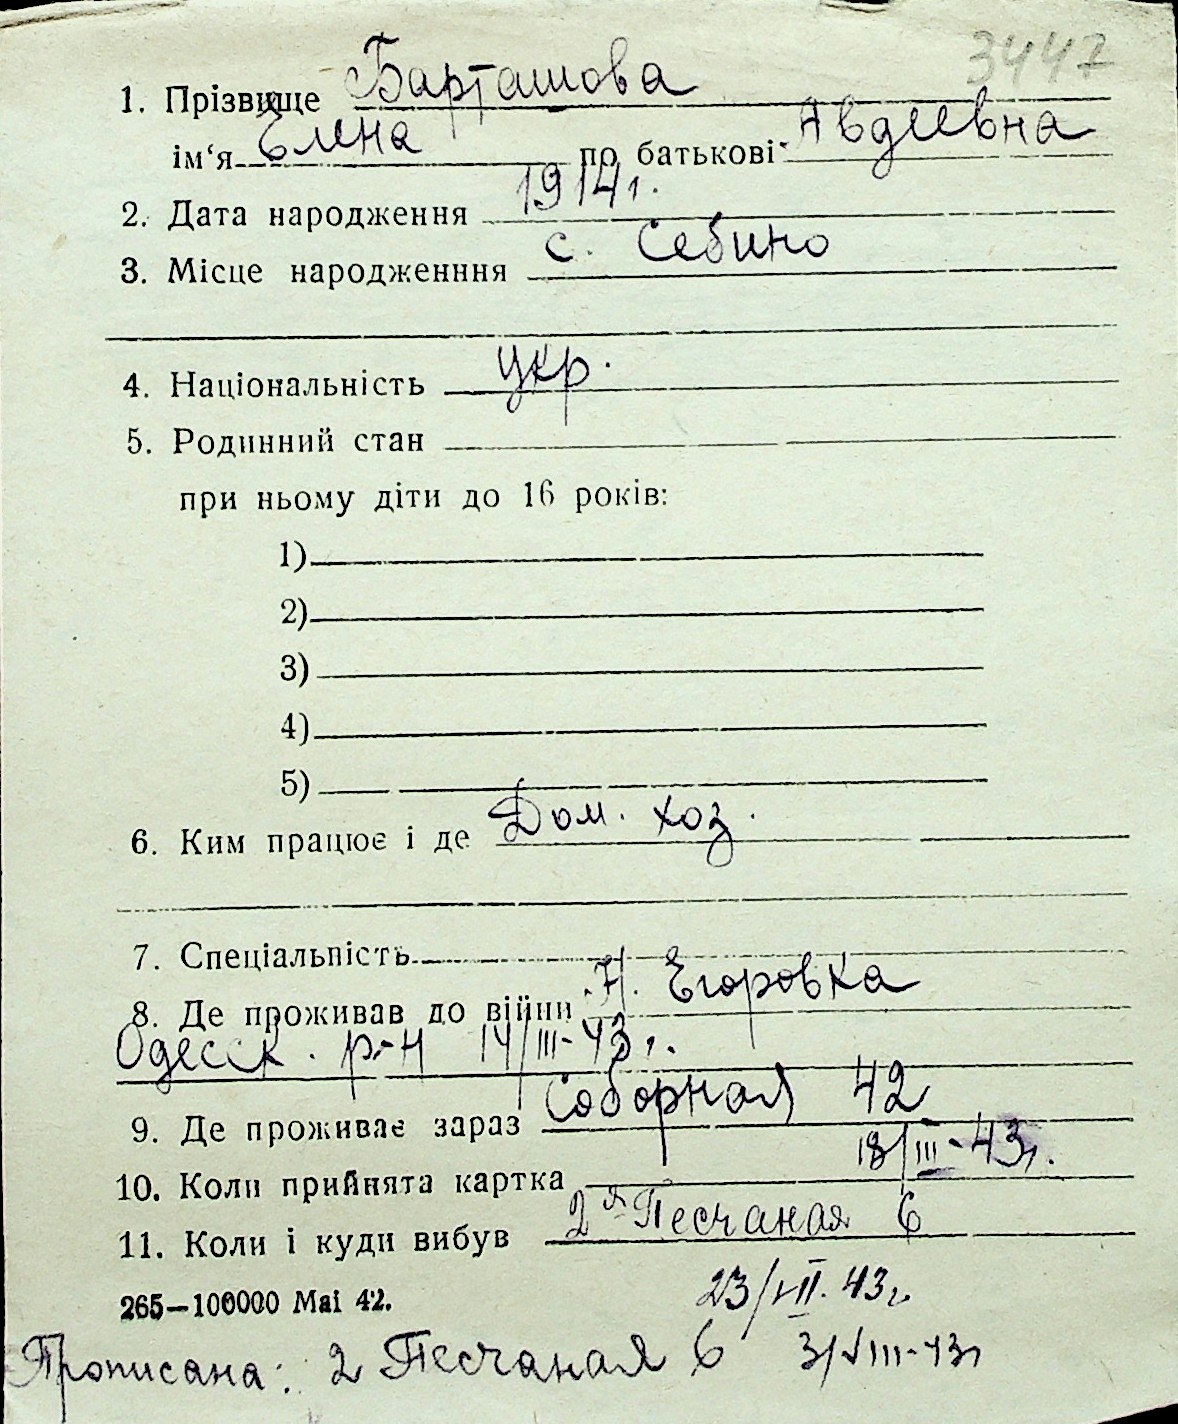 3447
1. Прізвище Барташова
ім‘я Елена по батькові Авдеевна
2. Дата народження 1914 г.
3. Місце народженння с. Себино
4. Національність укр.
5. Родинний стан
при ньому діти до 16 років:
1)
2)
3)
4)
5)
6. Ким працює і де Дом. хоз.
7. Спеціальність
8. Де проживав до війни Н. Егоровка
Одесск. р-н 14/III-43 г.
9. Де проживає зараз Соборная 42
10. Коли прийнята картка 18/III-43 г.
11. Коли і куди вибув 2я Песчаная 6
265—100000 Mai 42. 23/VII.43 г.
Прописана: 2 Песчаная 6 3/VIII-43 г